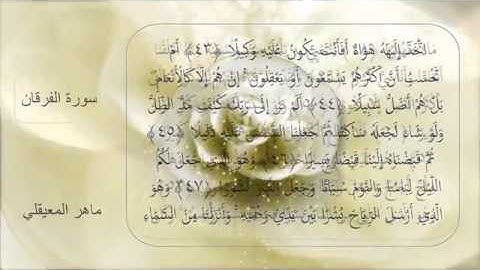 مَنِ اتَّخَذَ إِلَٰهَهُ هَوَاهُ أَفَأَنتَ تَكُونُ عَلَيْهِ وَكِيلًا ﴿٤٣﴾ أَمْ
تَحْسَبُ أَنَّ أَكْثَرَهُمْ يَسْمَعُونَ أَوْ يَعْقِلُونَ ۚ إِنْ هُمْ إِلَّا كَالْأَنْعَامِ
بَلْ هُمْ أَضَلُّ سَبِيلًا ﴿٤٤﴾ أَلَمْ تَرَ إِلَىٰ رَبِّكَ كَيْفَ مَدَّ الظِّلَّ
وَلَوْ شَاءَ لَجَعَلَهُ سَاكِنًا ثُمَّ جَعَلْنَا الشَّمْسَ عَلَيْهِ دَلِيلًا ﴿٤٥﴾
ثُمَّ قَبَضْنَاهُ إِلَيْنَا قَبْضًا يَسِيرًا ﴿٤٦﴾ وَهُوَ الَّذِي جَعَلَ لَكُمُ
اللَّيْلَ لِبَاسًا وَالنَّوْمَ سُبَاتًا وَجَعَلَ النَّهَارَ نُشُورًا ﴿٤٧﴾ وَهُوَ
الَّذِي أَرْسَلَ الرِّيَاحَ بُشْرًا بَيْنَ يَدَيْ رَحْمَتِهِ ۚ وَأَنزَلْنَا مِنَ السَّمَاءِ
سورة الفرقان
ماهر المعيقلي